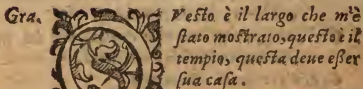 Gra. QVeſto è il largo che m'è
ſtato moſtrato, queſto è il
tempio, queſta deue eßer
ſua caſa.